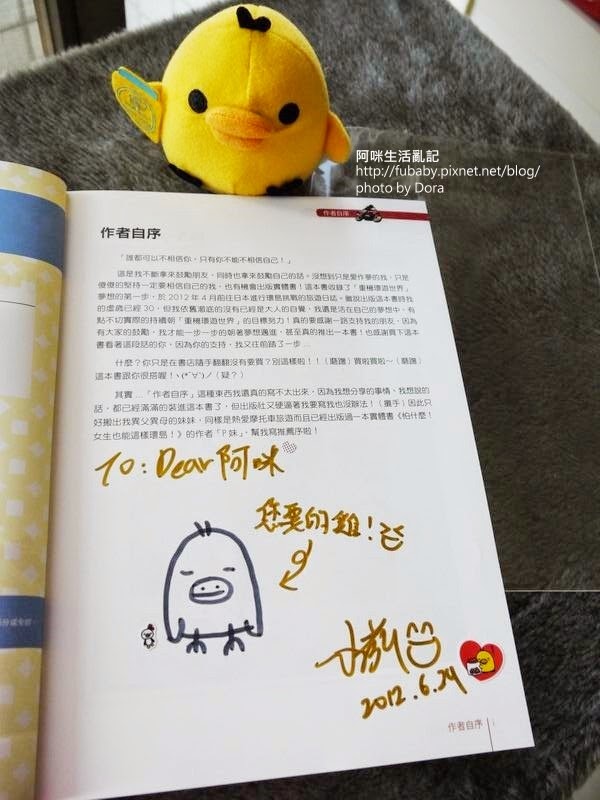 阿咪生活亂記
http://fubaby.pixnet.net/blog/
photo by Dora
作者自序
作者自序
「誰都可以不相信你，只有你不能不相信自己！」
這是我不斷拿來鼓勵朋友，同時也拿來鼓勵自己的話。沒想到只是愛作夢的我，只是
傻傻的堅持一定要相信自己的我，也有機會出版實體書！這本書收錄了「重機環遊世界」
夢想的第一步，於 2012 年 4 月前往日本進行環島挑戰的旅遊日誌。雖說出版這本書時我
的虛歲已經 30，但我依舊澈底的沒有已經是大人的自覺，我還是活在自己的夢想中，有
點不切實際的持續朝「重機環遊世界」的目標努力！真的要感謝一路支持我的朋友，因為
有大家的鼓勵，我才能一步一步的朝著夢想邁進，甚至真的推出一本書！也感謝買下這本
書看著這段話的你，因為你的支持，我又往前踏了一步 ...
什麼？你只是在書店隨手翻翻沒有要買？別這樣啦！！（磨蹭）買啦買啦～（磨蹭）
這本書跟你很搭喔！ヽ(*ˇ∀ˇ)ノ（疑？）
其實 ...「作者自序」這種東西我還真的寫不太出來，因為我想分享的事情、我想說的
話，都已經滿滿的裝進這本書了，但出版社又硬逼著我要寫我也沒辦法！（攤手）因此只
好搬出我異父異母的妹妹，同樣是熱愛摩托車旅遊而且已經出版過一本實體書《怕什麼！
女生也能這樣環島！》的作者「P 妹」，幫我寫推薦序啦！
TO: Dear 阿咪
您要的雞！
2012.6.24
作者自序